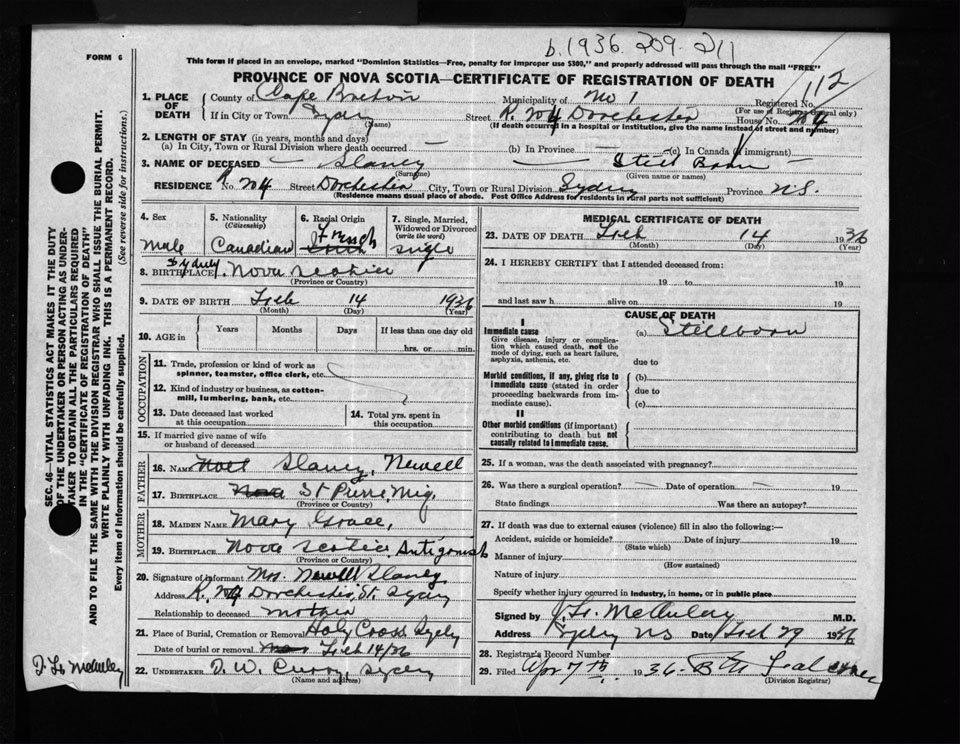 b. 1936. 209. 211
112
FORM 6
This form if placed in an envelope, marked "Dominion Statistics—Free, penalty for improper use $300," and properly addressed will pass through the mail "FREE"
PROVINCE OF NOVA SCOTIA—CERTIFICATE OF REGISTRATION OF DEATH
1. PLACE OF DEATH
County of Cape Breton Municipality of No 1 Registered No.
(For use of Registrar General only)
If in City or Town Sydney Street Dorchester House No.
(Name) (If death occurred in a hospital or institution, give the name instead of street and number)
2. LENGTH OF STAY (in years, months and days)
(a) In City, Town or Rural Division where death occurred — (b) In Province — (c) In Canada (if immigrant)
3. NAME OF DECEASED — Slaney — Still Born —
(Surname) (Given name or names)
RESIDENCE No. Street Dorchester City, Town or Rural Division Sydney Province N.S.
(Residence means usual place of abode. Post Office Address for residents in rural parts not sufficient)
4. Sex Male
5. Nationality (Citizenship) Canadian
6. Racial Origin French
7. Single, Married, Widowed or Divorced (write the word) single
8. BIRTHPLACE Sydney Nova Scotia
(Province or Country)
9. DATE OF BIRTH Feb 14 1936
(Month) (Day) (Year)
10. AGE in Years Months Days If less than one day old
hrs. or min.
OCCUPATION
11. Trade, profession or kind of work as spinner, teamster, office clerk, etc.
12. Kind of industry or business, as cotton-mill, lumbering, bank, etc.
13. Date deceased last worked at this occupation
14. Total yrs. spent in this occupation
15. If married give name of wife or husband of deceased
FATHER
16. NAME Noel Slaney, Newell
17. BIRTHPLACE Nova St Pierre, Miq.
(Province or Country)
MOTHER
18. MAIDEN NAME Mary Grace,
19. BIRTHPLACE Nova Scotia, Antigonish
(Province or Country)
20. Signature of informant Mrs. Newell Slaney
Address Dorchester, St. Sydney
Relationship to deceased mother
21. Place of Burial, Cremation or Removal Holy Cross Sydney
Date of burial or removal Feb 14/36
22. UNDERTAKER D. W. Curry, Sydney
(Name and address)
MEDICAL CERTIFICATE OF DEATH
23. DATE OF DEATH Feb 14 1936
(Month) (Day) (Year)
24. I HEREBY CERTIFY that I attended deceased from:
19 to 19
and last saw h alive on 19
CAUSE OF DEATH
I
Immediate cause (a) Stillborn
Give disease, injury or complication which caused death, not the mode of dying, such as heart failure, asphyxia, asthenia, etc.
due to
Morbid conditions, if any, giving rise to immediate cause (stated in order proceeding backwards from immediate cause).
(b)
due to
(c)
II
Other morbid conditions (if important) contributing to death but not causally related to immediate cause.
25. If a woman, was the death associated with pregnancy?
26. Was there a surgical operation? — Date of operation — 19
State findings Was there an autopsy?
27. If death was due to external causes (violence) fill in also the following:—
Accident, suicide or homicide? Date of injury 19
(State which)
Manner of injury
(How sustained)
Nature of injury
Specify whether injury occurred in industry, in home, or in public place
Signed by M.D.
Address Sydney NS Date Feb 29 1936
28. Registrar's Record Number
29. Filed Apr 7th 1936
(Division Registrar)
SEC. 46—VITAL STATISTICS ACT MAKES IT THE DUTY
OF THE UNDERTAKER OR PERSON ACTING AS UNDERTAKER TO OBTAIN ALL THE PARTICULARS REQUIRED
IN THE "CERTIFICATE OF REGISTRATION OF DEATH"
AND TO FILE THE SAME WITH THE DIVISION REGISTRAR WHO SHALL ISSUE THE BURIAL PERMIT.
WRITE PLAINLY WITH UNFADING INK. THIS IS A PERMANENT RECORD.
Every item of Information should be carefully supplied. (See reverse side for instructions.)